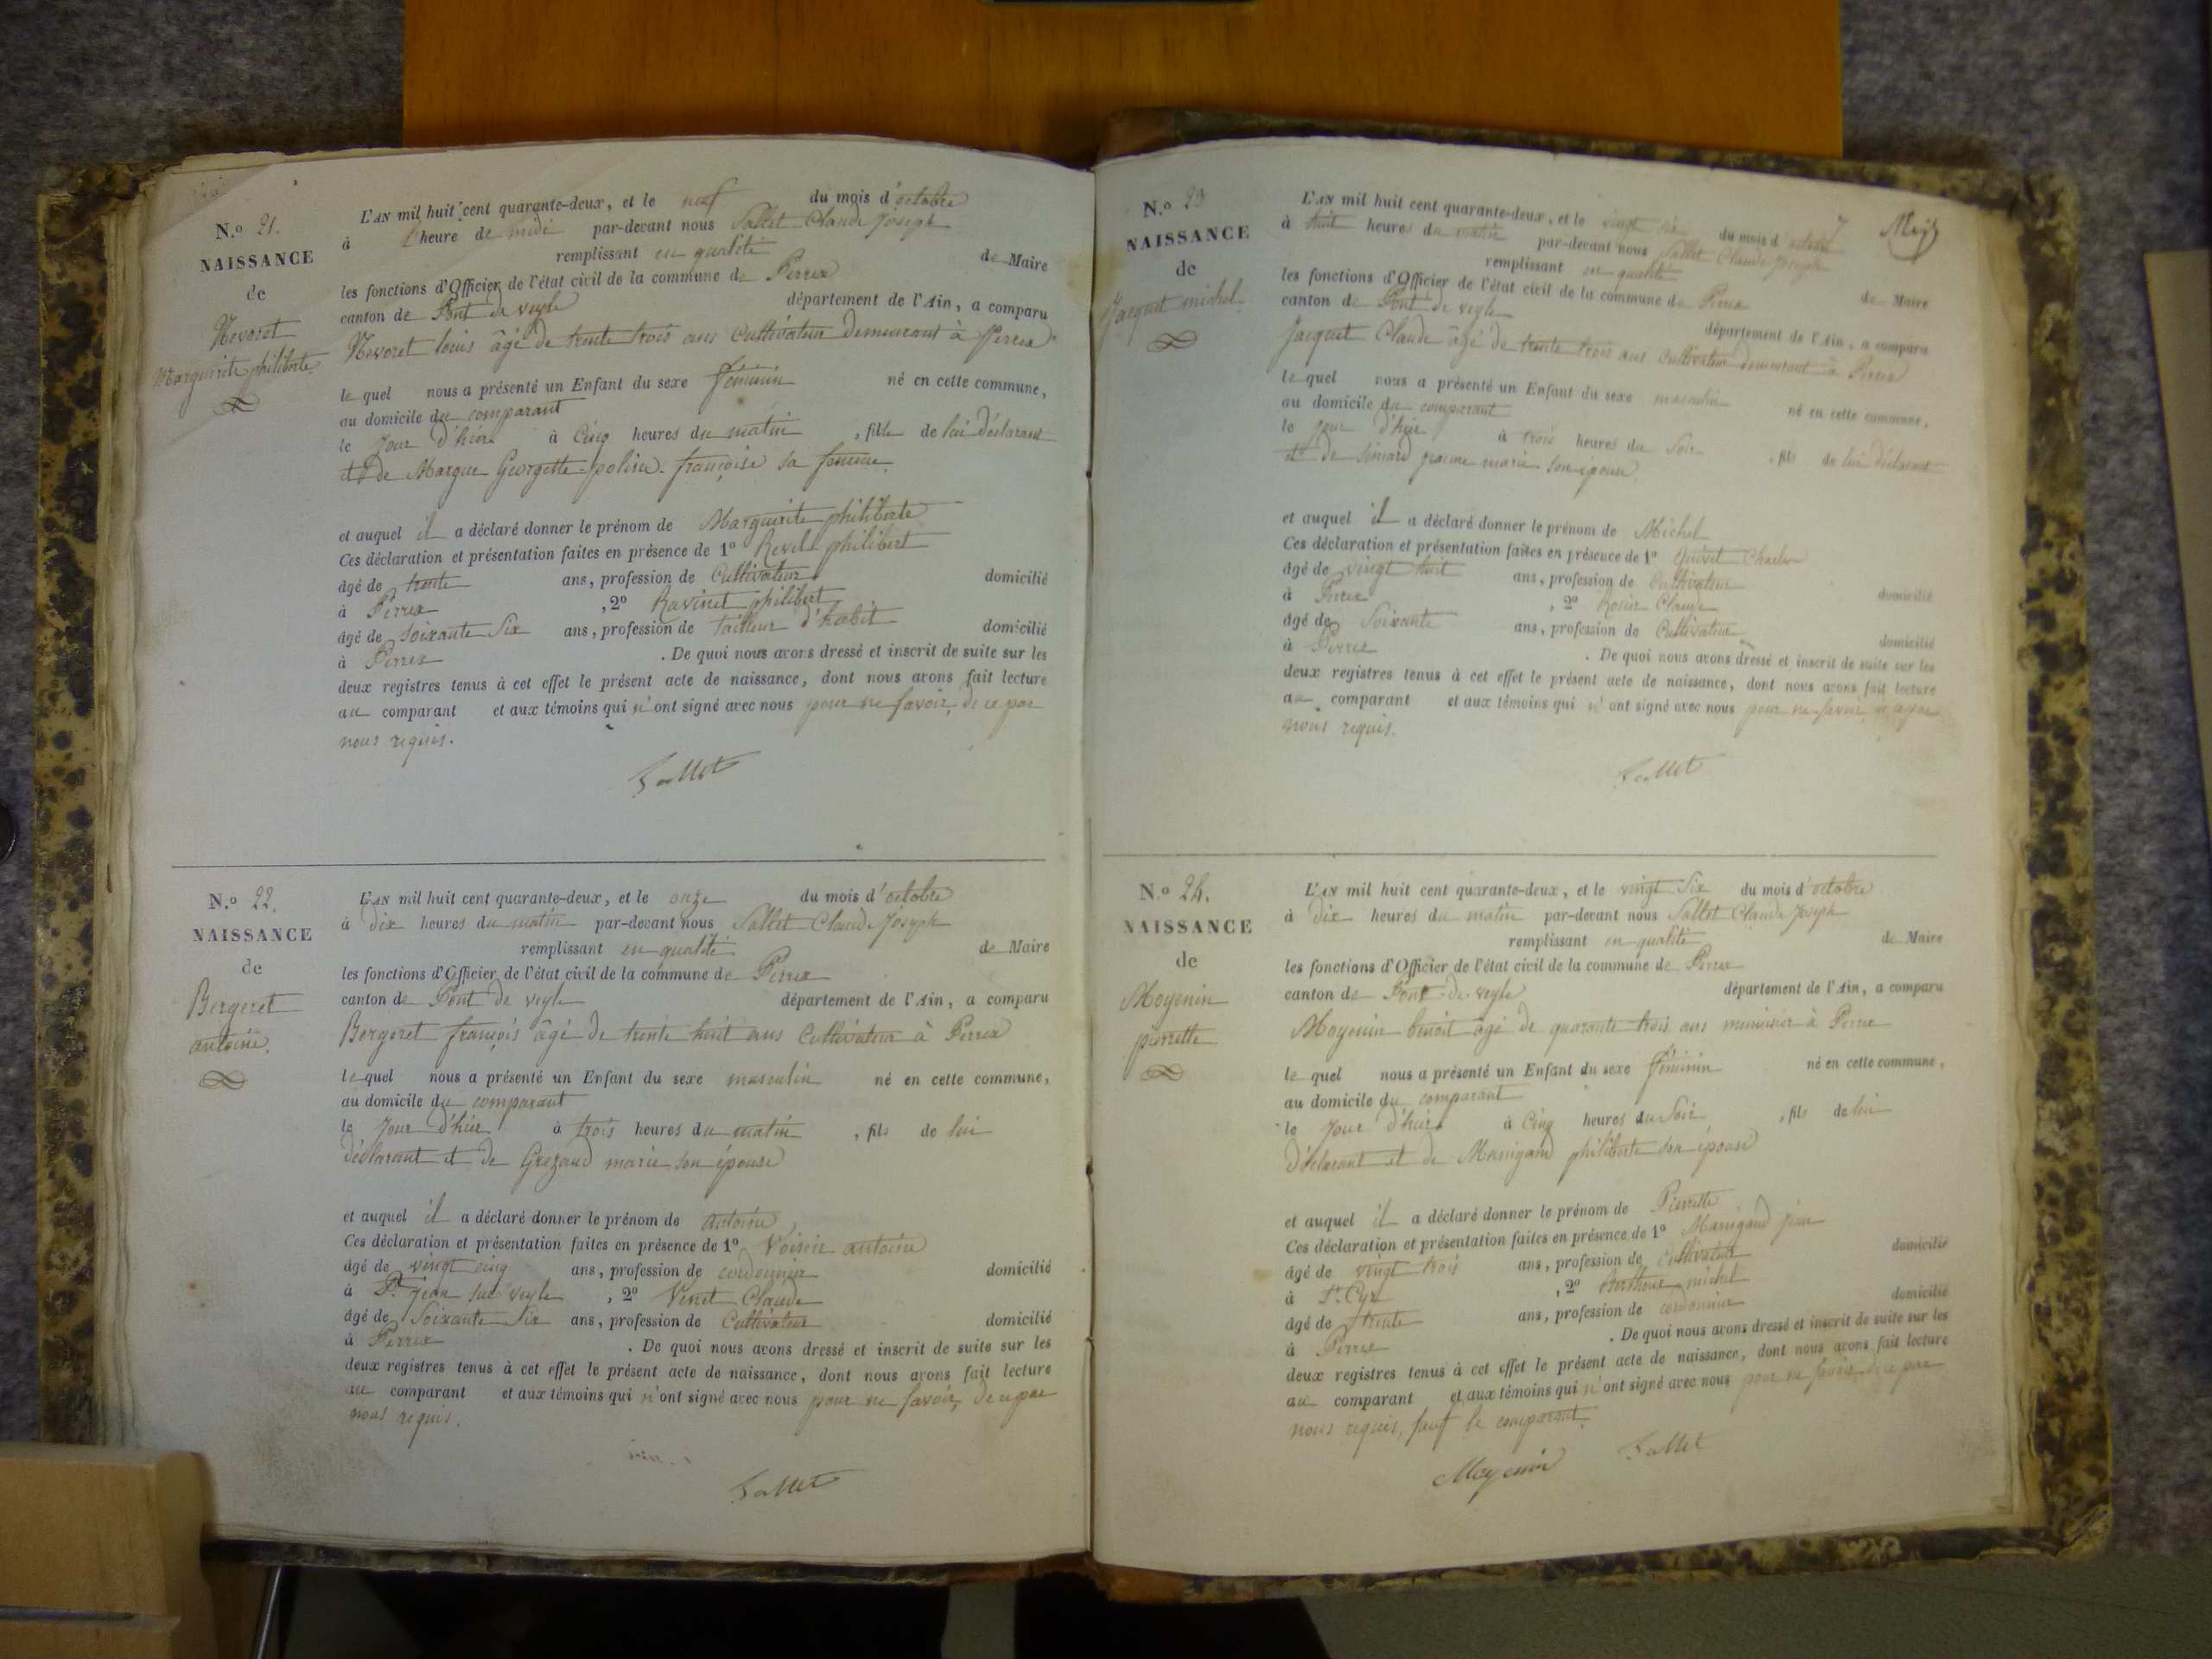 N.º 21.
NAISSANCE
de
Nevoret
Marguerite philiberte.
L'AN mil huit cent quarante-deux, et le neuf du mois d'octobre
à l'heure de midi par-devant nous Sallet Claude Joseph
remplissant en qualité de Maire
les fonctions d'Officier de l'état civil de la commune de Perrex
canton de Pont de veyle département de l'Ain, a comparu
Nevoret louis âgé de trente trois ans Cultivateur demeurant à Perrex
lequel nous a présenté un Enfant du sexe féminin né en cette commune,
au domicile du comparant
le jour d'hier à Cinq heures du matin , fille de lui déclarant
et de Margue Georgette françoise sa femme.
et auquel il a déclaré donner le prénom de Marguerite philiberte
Ces déclaration et présentation faites en présence de 1º Revel philibert
âgé de trente ans, profession de Cultivateur domicilié
à Perrex , 2º Ravinet philibert
âgé de soixante Six ans, profession de tailleur d'habit domicilié
à Perrex . De quoi nous avons dressé et inscrit de suite sur les
deux registres tenus à cet effet le présent acte de naissance, dont nous avons fait lecture
au comparant et aux témoins qui n'ont signé avec nous pour ne savoir, de ce par
nous requis.
Sallet
N.º 22.
NAISSANCE
de
Bergeret
antoine.
L'AN mil huit cent quarante-deux, et le onze du mois d'octobre
à dix heures du matin par-devant nous Sallet Claude Joseph
remplissant en qualité de Maire
les fonctions d'Officier de l'état civil de la commune de Perrex
canton de Pont de veyle département de l'Ain, a comparu
Bergeret françois âgé de trente huit ans Cultivateur à Perrex
lequel nous a présenté un Enfant du sexe masculin né en cette commune,
au domicile du comparant
le jour d'hier à trois heures du matin , fils de lui
déclarant et de Grezaud marie son épouse
et auquel il a déclaré donner le prénom de antoine
Ces déclaration et présentation faites en présence de 1º Voisin antoine
âgé de vingt cinq ans, profession de cordonnier domicilié
à St. jean sur veyle , 2º Veret Claude
âgé de Soixante Six ans, profession de Cultivateur domicilié
à Perrex . De quoi nous avons dressé et inscrit de suite sur les
deux registres tenus à cet effet le présent acte de naissance, dont nous avons fait lecture
au comparant et aux témoins qui n'ont signé avec nous pour ne savoir, de ce par
nous requis.
Sallet
7
N.º 23
NAISSANCE
de
Jacquet michel.
L'AN mil huit cent quarante-deux, et le vingt six du mois d'octobre
à huit heures du matin par-devant nous Sallet Claude Joseph
remplissant en qualité de Maire
les fonctions d'Officier de l'état civil de la commune de Perrex
canton de Pont de veyle département de l'Ain, a comparu
Jacquet Claude âgé de trente trois ans Cultivateur demeurant à Perrex
lequel nous a présenté un Enfant du sexe masculin né en cette commune,
au domicile du comparant
le jour d'hier à trois heures du Soir , fils de lui déclarant
et de marie son épouse
et auquel il a déclaré donner le prénom de Michel
Ces déclaration et présentation faites en présence de 1º Quivet Charles
âgé de vingt huit ans, profession de Cultivateur domicilié
à Perrex , 2º Claude
âgé de Soixante ans, profession de Cultivateur domicilié
à Perrex . De quoi nous avons dressé et inscrit de suite sur les
deux registres tenus à cet effet le présent acte de naissance, dont nous avons fait lecture
au comparant et aux témoins qui n'ont signé avec nous pour ne savoir, de ce par
nous requis.
Sallet
N.º 24.
NAISSANCE
de
Moyenin
pierrette
L'AN mil huit cent quarante-deux, et le vingt Six du mois d'octobre
à dix heures du matin par-devant nous Sallet Claude Joseph
remplissant en qualité de Maire
les fonctions d'Officier de l'état civil de la commune de Perrex
canton de Pont-de-veyle département de l'Ain, a comparu
Moyenin benoit âgé de quarante trois ans menuisier à Perrex
lequel nous a présenté un Enfant du sexe féminin né en cette commune,
au domicile du comparant
le jour d'hier à Cinq heures du Soir , fils de lui
déclarant et de Manigand philiberte son épouse
et auquel il a déclaré donner le prénom de Pierrette
Ces déclaration et présentation faites en présence de 1º Manigand
âgé de vingt trois ans, profession de Cultivateur domicilié
à St. Cyr , 2º michel
âgé de trente ans, profession de cordonnier domicilié
à Perrex . De quoi nous avons dressé et inscrit de suite sur les
deux registres tenus à cet effet le présent acte de naissance, dont nous avons fait lecture
au comparant et aux témoins qui n'ont signé avec nous pour ne savoir, de ce par
nous requis, sauf le comparant.
Moyenin Sallet